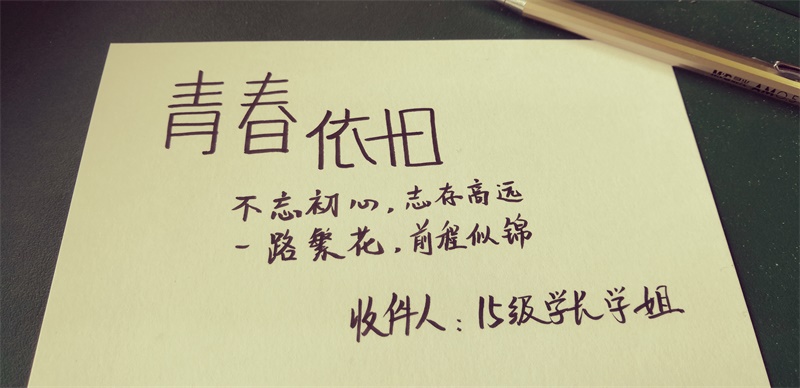 青春依旧
不忘初心，志存高远
一路繁花，前程似锦
收件人：15级学长学姐